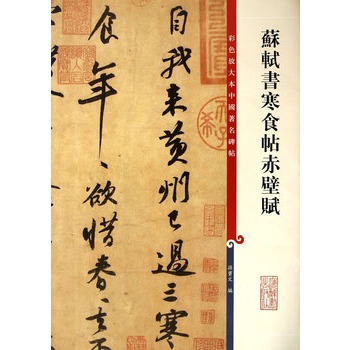 蘇軾書寒食帖赤壁賦
彩色放大本中國著名碑帖
孫寶文 編
自我来黄州已過三寒
食年〻欲惜春〻去不